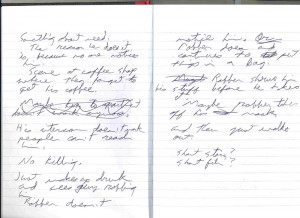 Something about need,
The reason he does it
is, because no one notices
him.
Scene at coffee shop
where they forget to
get his coffee.
Maybe
His doesn't
people can't read
him.
No killing.
Just makes up drunk
and sees guy robbing
him
Robber doesn't
notice him.
Robber does and
continues to put
things in a bag.
Robber shows him
his stuff before he takes
Maybe robber takes
off his mask,
and then just walks
out.
Short story?
Short film?